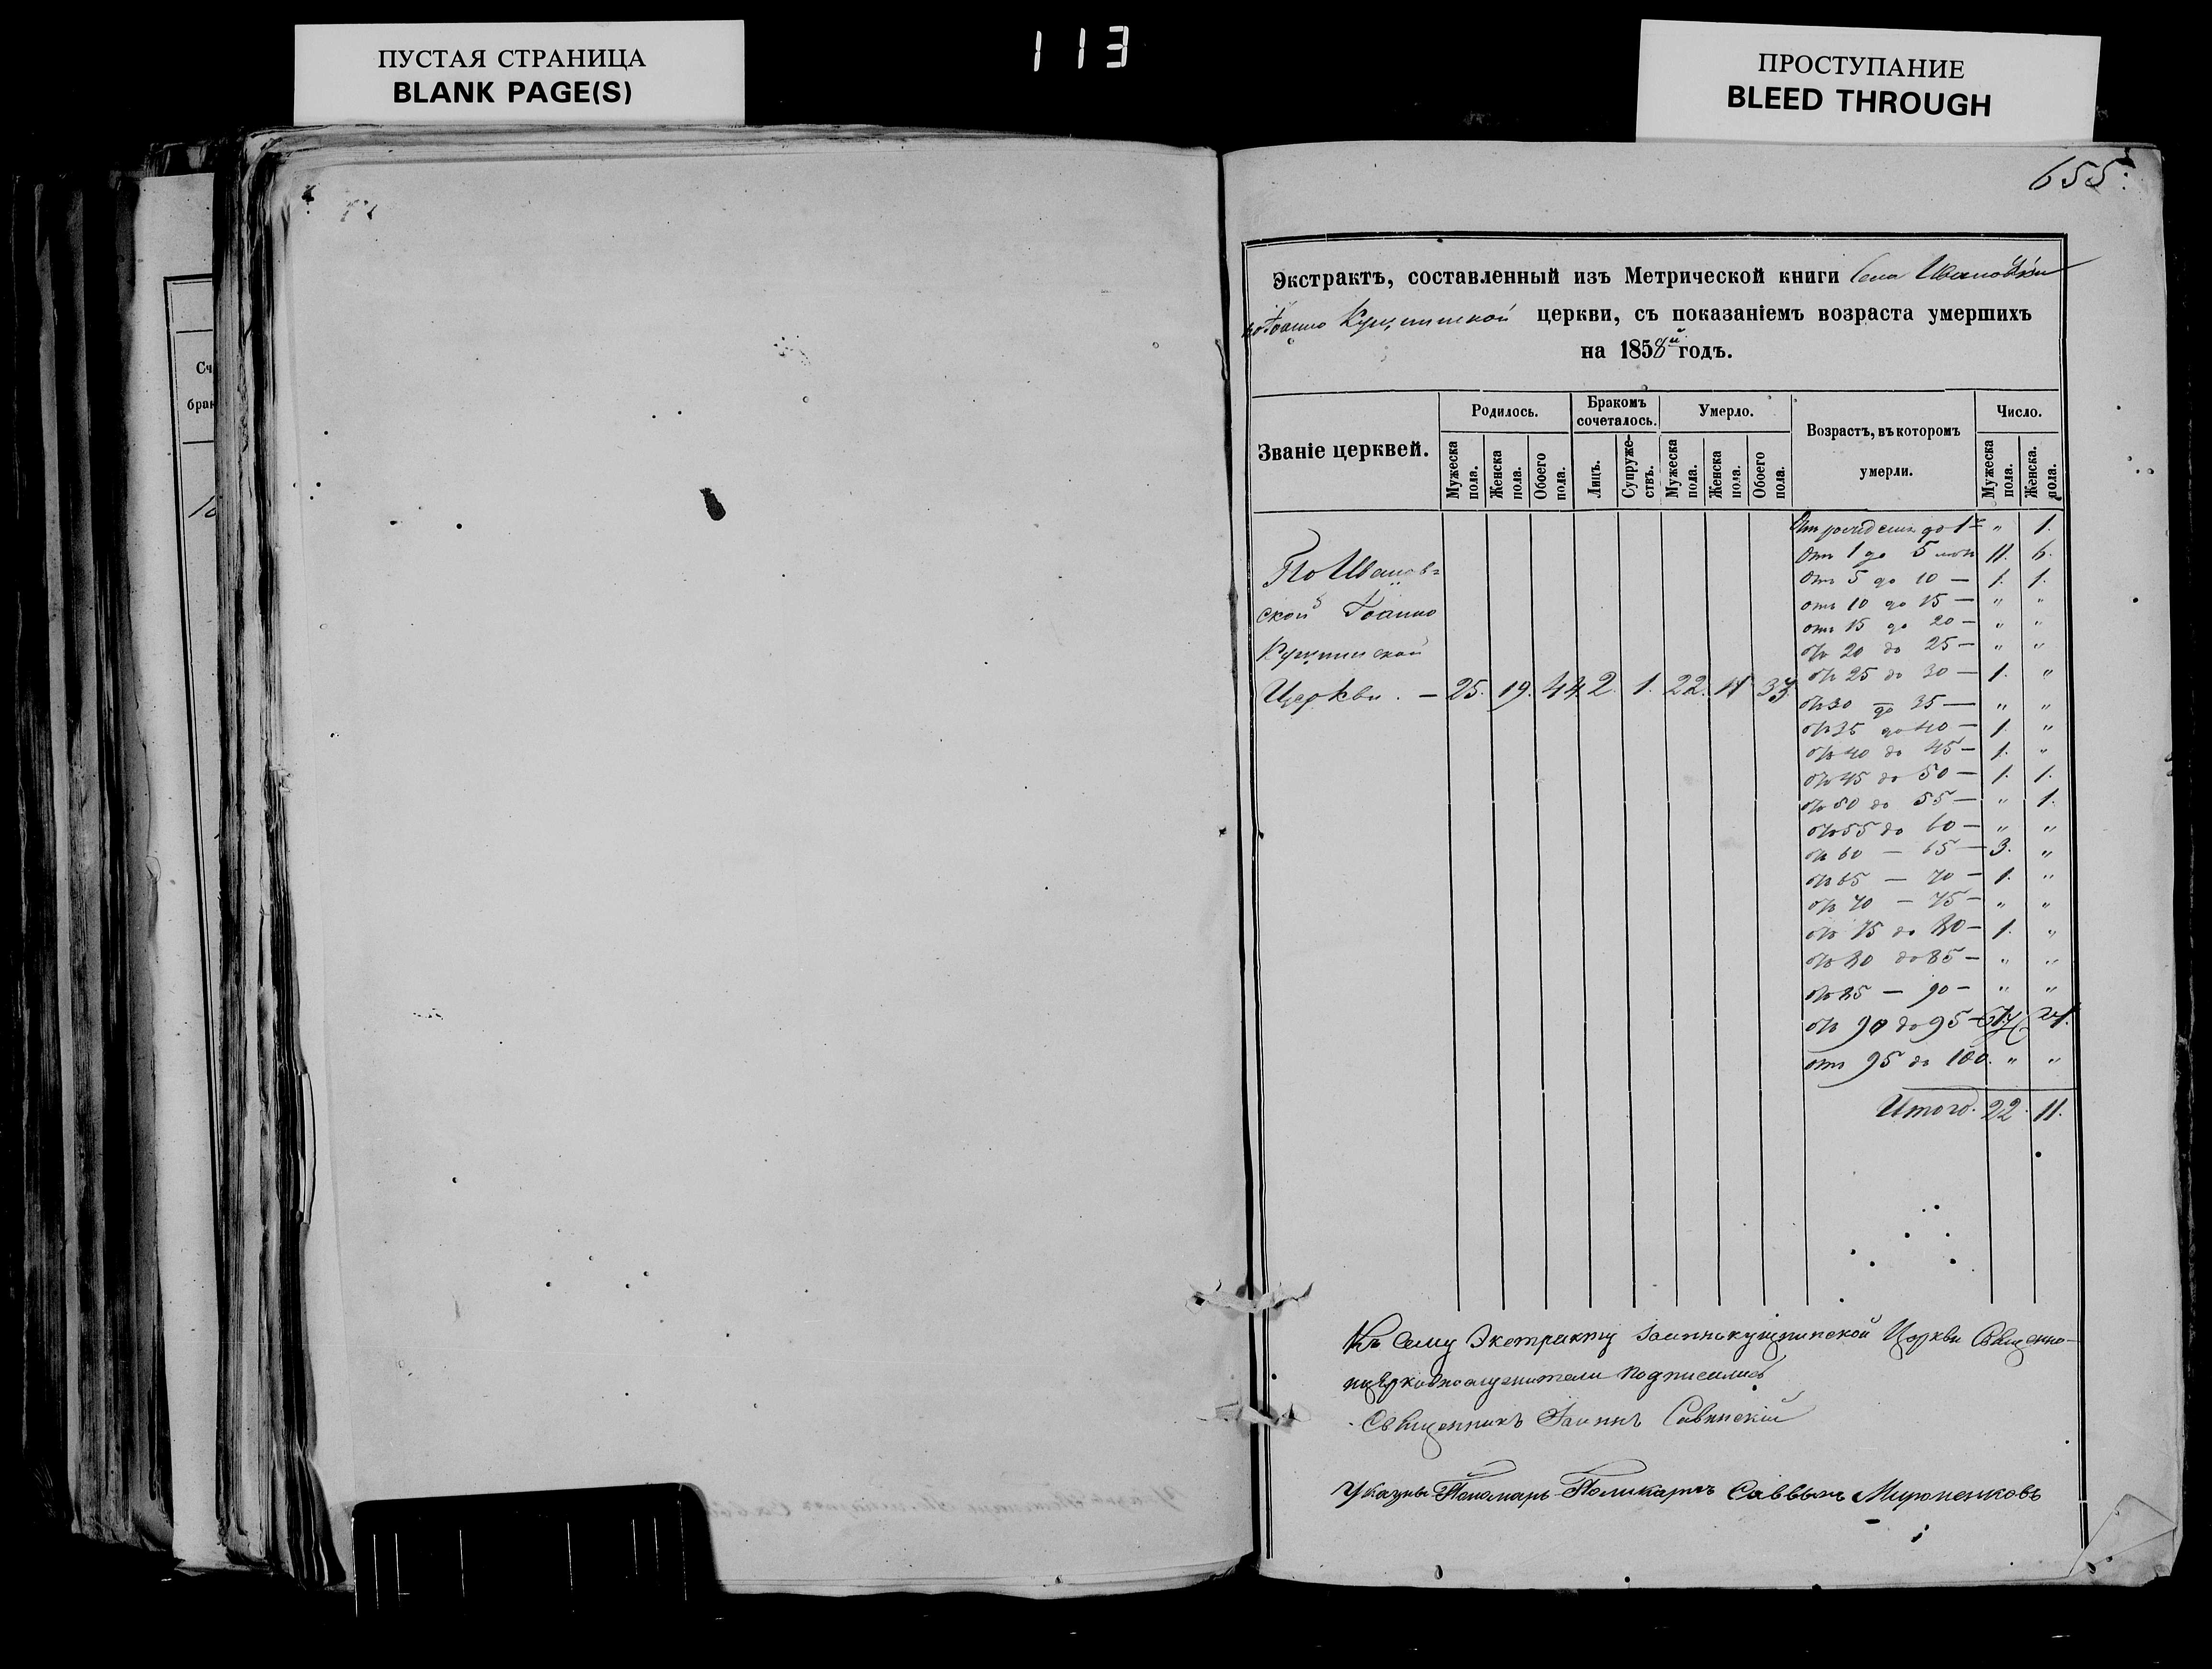 ПУСТАЯ СТРАНИЦА
BLANK PAGE(S)
113
ПРОСТУПАНИЕ
BLEED THROUGH
Сч
брак
655.
Экстрактъ, составленный изъ Метрической книги Села Ивановки
Іоанно церкви, съ показаніемъ возраста умершихъ
на 1858й годъ.
Званіе церквей.
Родилось.
Мужеска пола.
Женска пола.
Обоего пола.
Бракомъ сочеталось.
Лицъ.
Супружествъ.
Умерло.
Мужеска пола.
Женска пола.
Обоего пола.
Возрастъ, въ которомъ умерли.
Число.
Мужеска пола.
Женска. пола.
По Иванов=
ской Іоанно
Кущинской
Церкви. — 25. 19. 44. 2. 1. 22. 11 33.
От рожденія до 1г " 1.
Отъ 1 до 5 летъ 11. 6.
Отъ 5 до 10 — 1. 1.
отъ 10 до 15 — " "
отъ 15 до 20 — " "
отъ 20 до 25 — " "
отъ 25 до 30 — 1. "
отъ 30 до 35 — " "
отъ 35 до 40 — 1. "
отъ 40 до 45 — 1. "
отъ 45 до 50 — 1. 1.
отъ 50 до 55 — " 1.
отъ 55 до 60 — " "
отъ 60 — 65 — 3. "
отъ 65 — 70 — 1. "
отъ 70 — 75 — " "
отъ 75 до 80 — 1. "
отъ 80 до 85 — " "
отъ 85 — 90 — " "
отъ 90 до 95 —
отъ 95 до 100. " "
Итого. 22. 11.
Къ Сему Экстракту Іоаннокущинской Церкви Священно-
ицерковнослужители подписались
Священникъ Іоаннъ Савинскій
Указный Пономарь Поликарпъ Саввинъ Мироненковъ